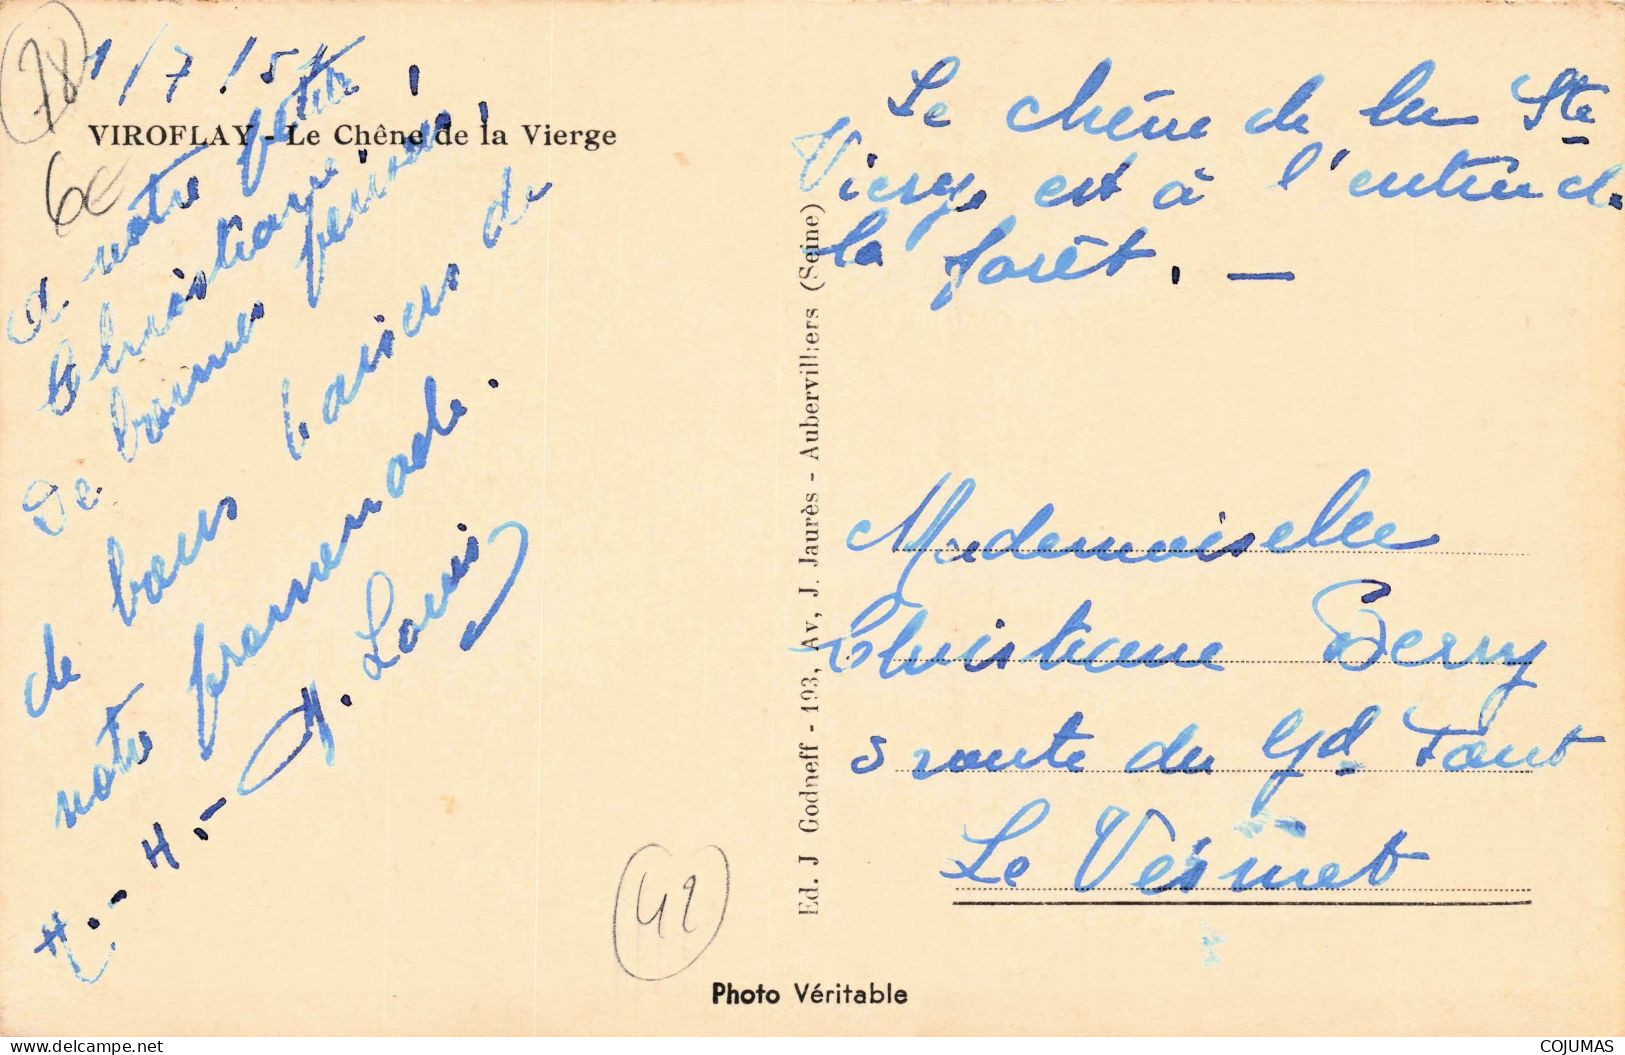 78
1/7/5
VIROFLAY - Le Chêne de la Vierge
6€
A notre petite
Christiane !
De bonnes pensées !
de bons baisers de
notre promenade.
H. Louis
Le chêne de la Ste
Vierge est à l'entrée de
la forêt. —
Ed. J Godneff - 193, Av, J. Jaurès - Aubervilliers (Seine)
Mademoiselle
Christiane Derry
5 route du Gd Pont
Le Vésinet
42
Photo Véritable
COJUMAS
delcampe.net